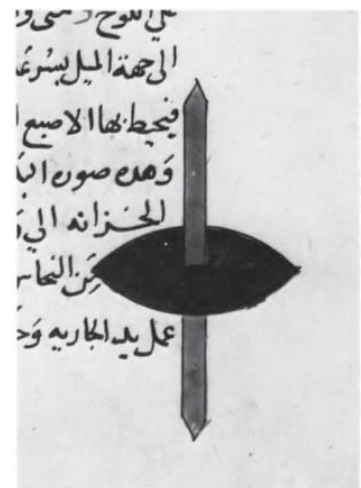 علي اللوح
الي جهة الميل
فيحيط بها الاصبع
وهذه صوره
الخزانه الي
من النحاس
عمل يد الجاريه